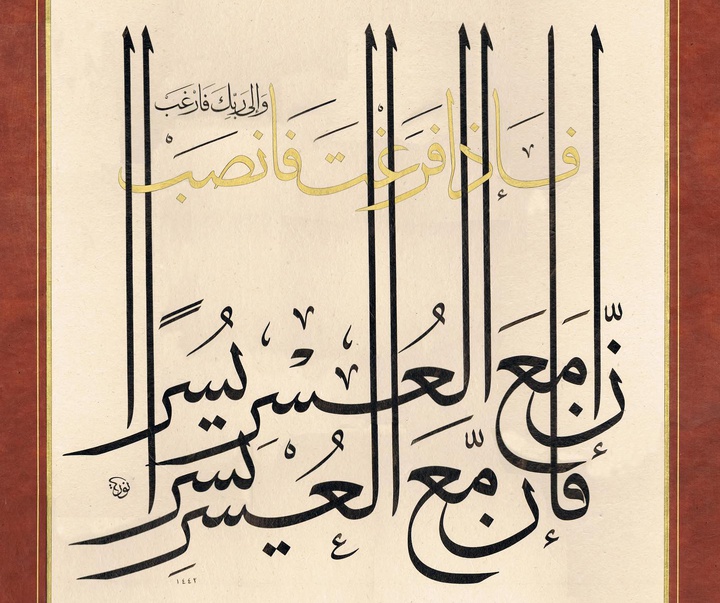 وَإِلى رَبِّكَ فَارْغَبْ
فَإِذَا فَرَغْتَ فَانْصَبْ
إِنَّ مَعَ الْعُسْرِ يُسْرًا
فَإِنَّ مَعَ الْعُسْرِ يُسْرًا
نورية
١٤٤٢